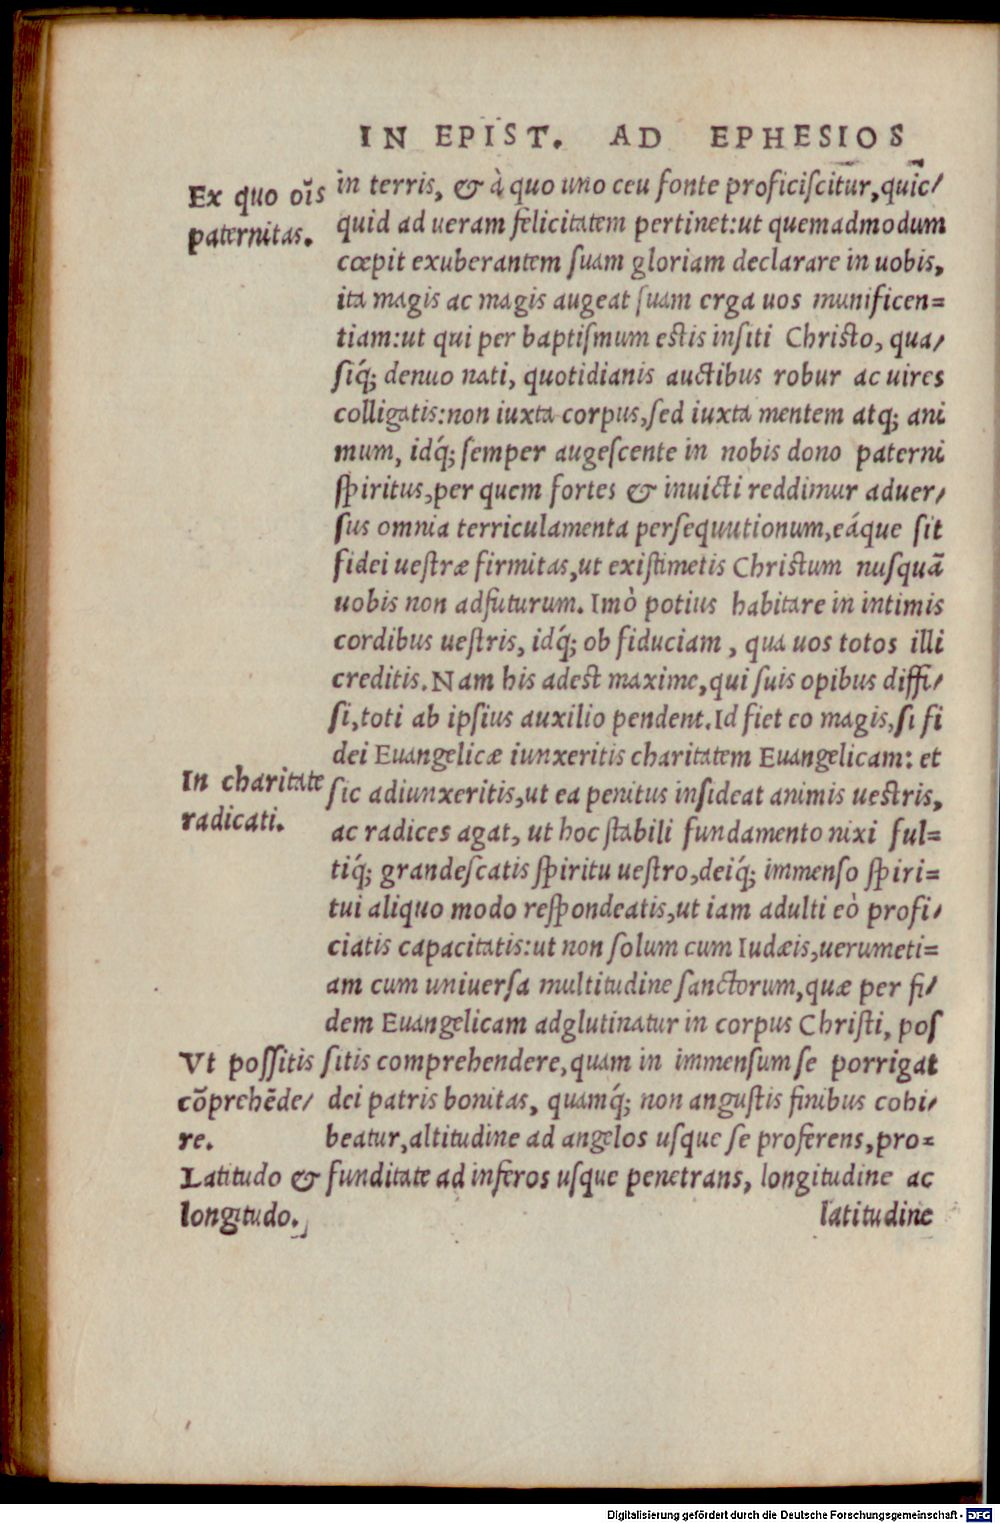 IN EPIST. AD EPHESIOS
Ex quo oīs
paternitas.
in terris, & à quo uno ceu fonte proficiſcitur, quic/
quid ad ueram felicitatem pertinet: ut quemadmodum
cœpit exuberantem ſuam gloriam declarare in uobis,
ita magis ac magis augeat ſuam erga uos munificen=
tiam: ut qui per baptiſmum eſtis inſiti Chriſto, qua/
ſiq́; denuo nati, quotidianis auctibus robur ac uires
colligatis: non iuxta corpus, ſed iuxta mentem atq; ani
mum, idq́; ſemper augeſcente in nobis dono paterni
ſpiritus, per quem fortes & inuicti reddimur aduer/
ſus omnia terriculamenta perſequutionum, eáque ſit
fidei ueſtræ firmitas, ut exiſtimetis Chriſtum nuſquã
uobis non adfuturum. Imò potius habitare in intimis
cordibus ueſtris, idq́; ob fiduciam, qua uos totos illi
creditis. Nam his adeſt maxime, qui ſuis opibus diffi/
ſi, toti ab ipſius auxilio pendent. Id fiet eo magis, ſi fi
dei Euangelicæ iunxeritis charitatem Euangelicam: et
In charitate
radicati.
ſic adiunxeritis, ut ea penitus inſideat animis ueſtris,
ac radices agat, ut hoc ſtabili fundamento nixi ful=
tiq́; grandeſcatis ſpiritu ueſtro, deiq́; immenſo ſpiri=
tui aliquo modo reſpondeatis, ut iam adulti eò profi/
ciatis capacitatis: ut non ſolum cum Iudæis, uerumeti=
am cum uniuerſa multitudine ſanctorum, quæ per fi/
dem Euangelicam adglutinatur in corpus Chriſti, poſ
Vt poſſitis
cōprehēde/
re.
Latitudo &
longitudo.
ſitis comprehendere, quam in immenſum ſe porrigat
dei patris bonitas, quamq́; non anguſtis finibus cohi/
beatur, altitudine ad angelos uſque ſe proferens, pro=
funditate ad inferos uſque penetrans, longitudine ac
latitudine
Digitalisierung gefördert durch die Deutsche Forschungsgemeinschaft - DFG